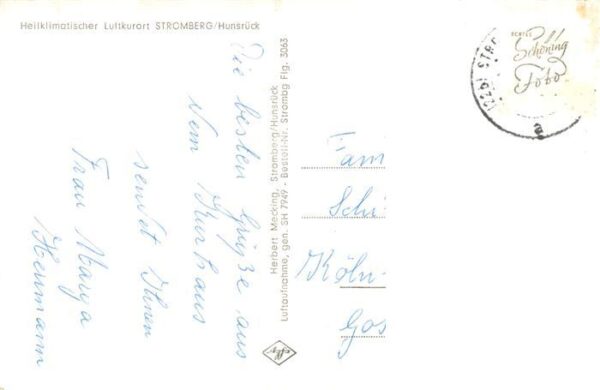 Heilklimatischer Luftkurort STROMBERG/Hunsrück
Die besten Grüße aus
dem Kurhaus
sendet Ihnen
Frau Marga
Hermann
Herbert Mecking, Stromberg/Hunsrück
Luftaufnahme, gen. SH 7949 - Bestell-Nr. Strombg Flg. 3063
ECHTES
Schöning
Foto
Fam
Schi
Köln-
Gos